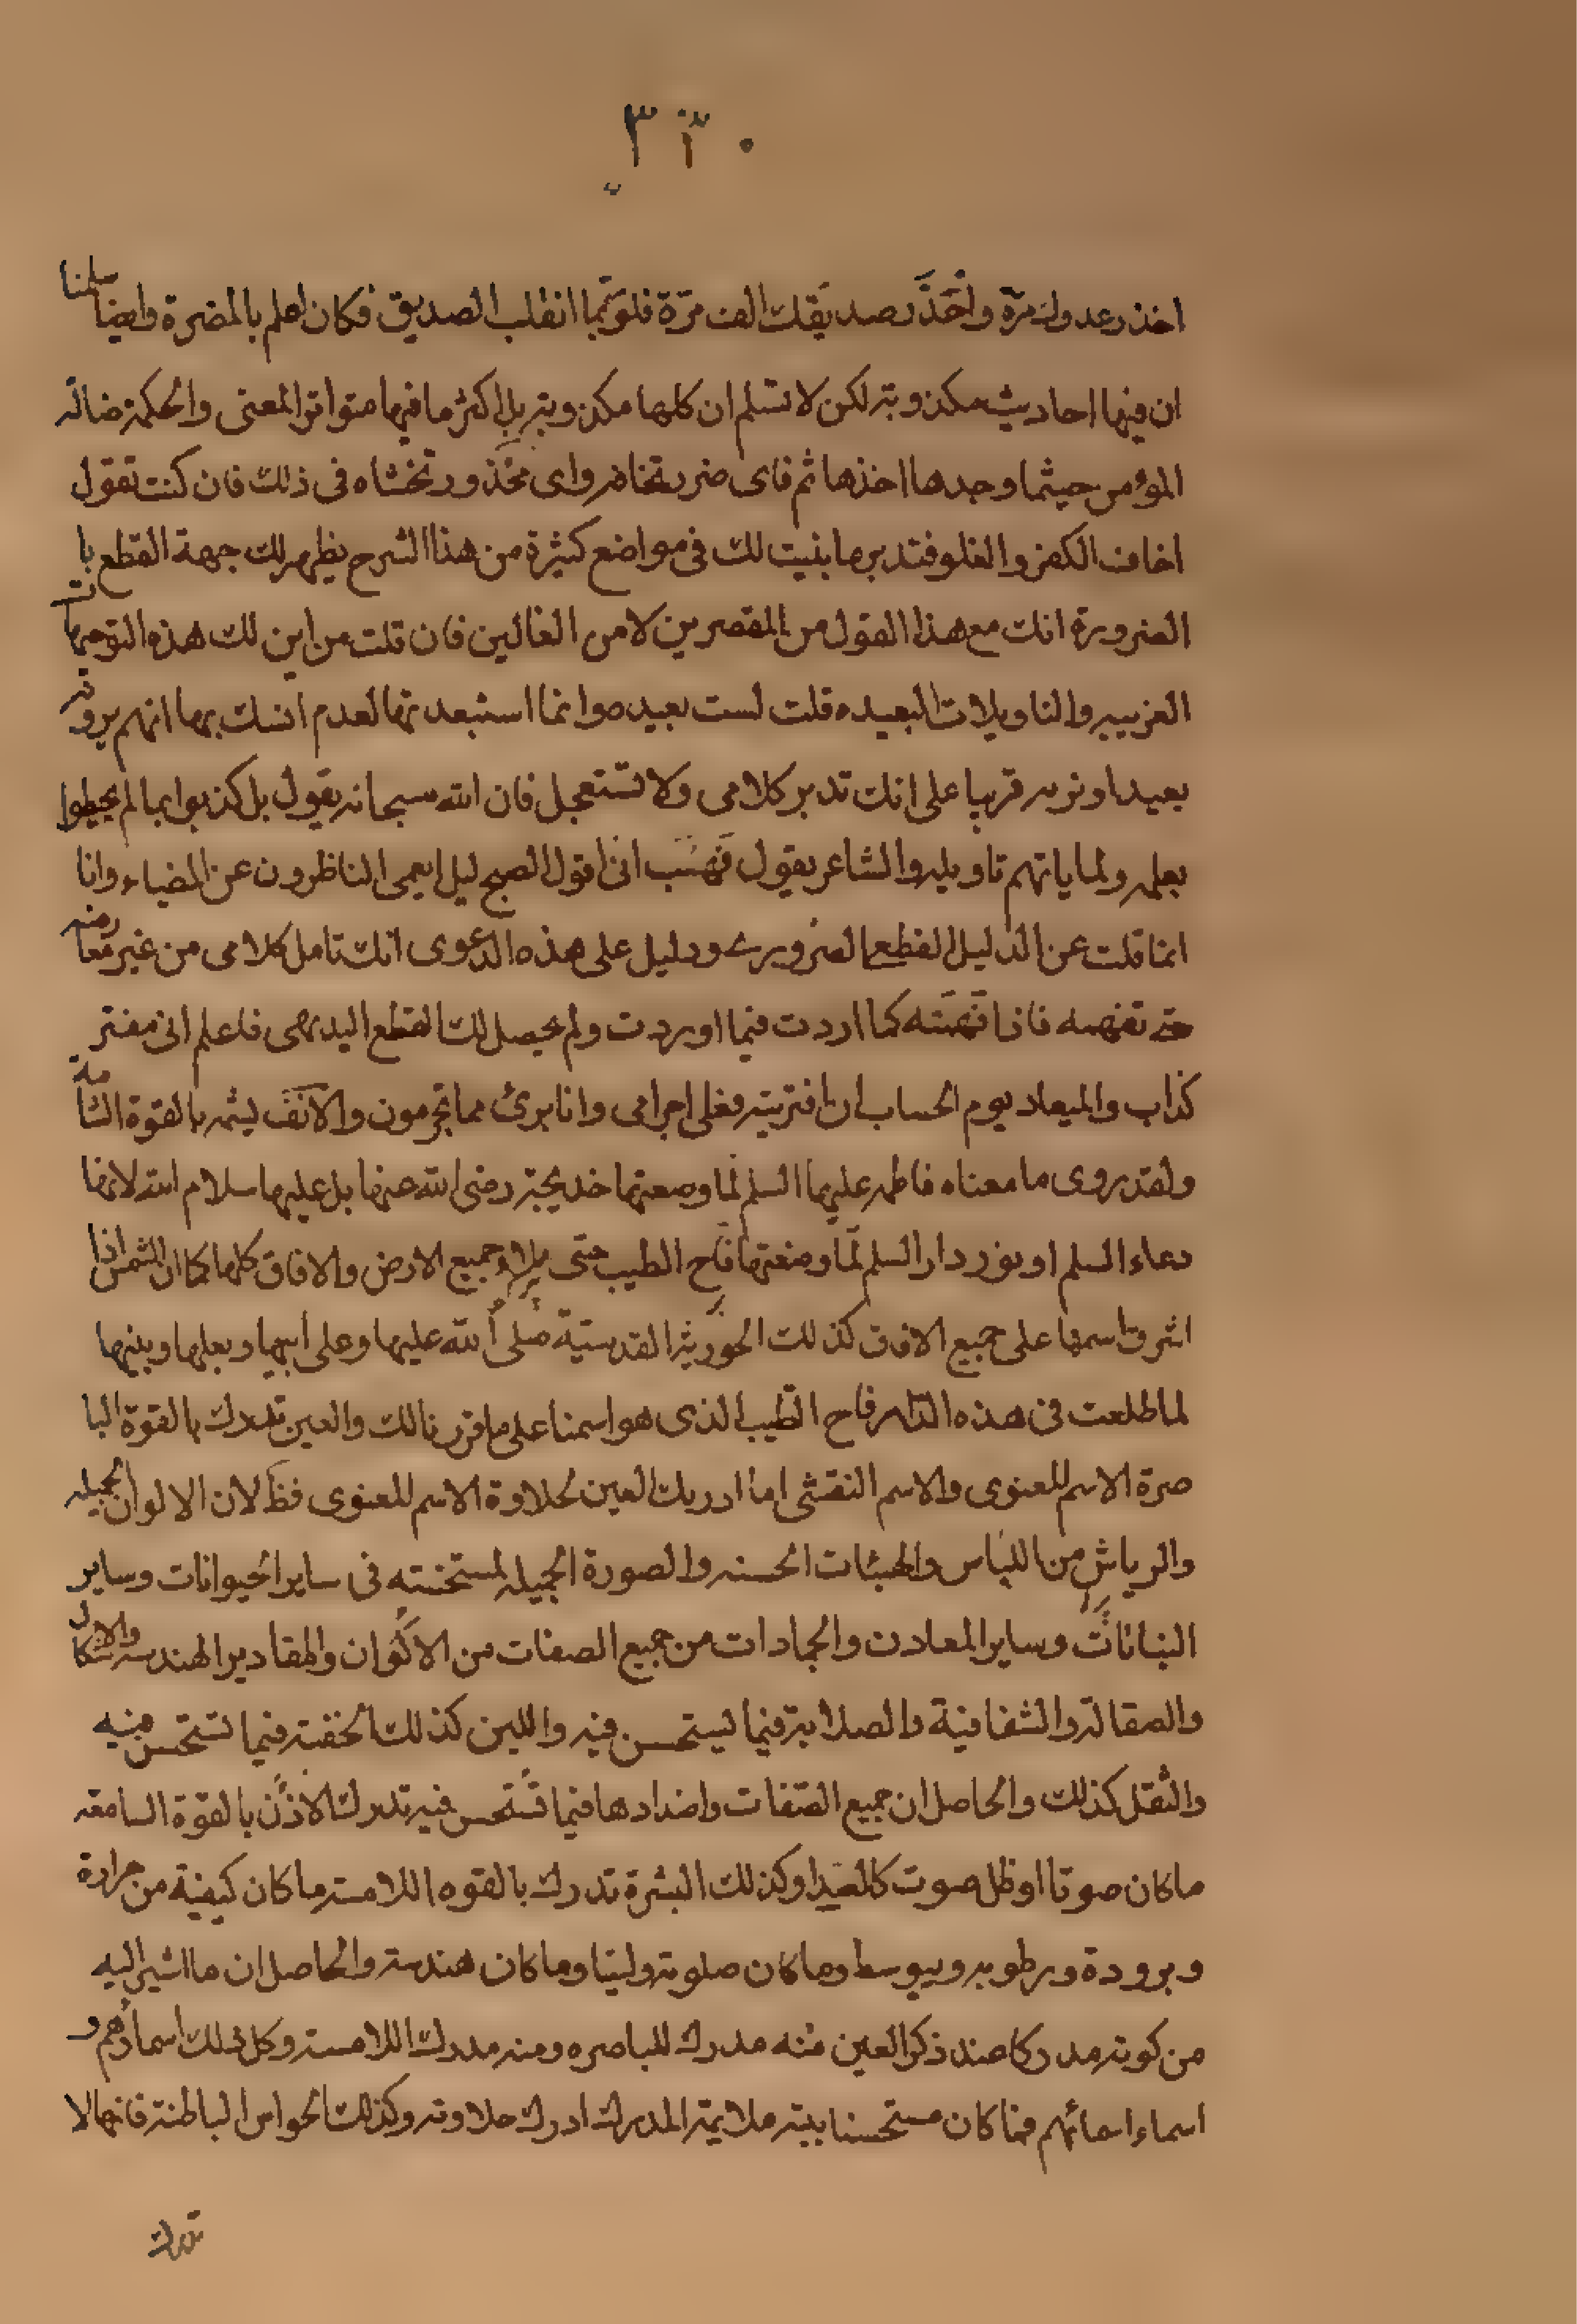 ٣١٠
احذر عدوك مرة واحذر صديقك الف مرة فلربما انقلب الصديق فكان اعلم بالمضرة وايضا سلمنا
ان فيها احاديث مكذوبة لكن لا نسلم ان كلها مكذوبة بل اكثر ما فيها متواتر المعنى والحكمة ضالة
المؤمن حيثما وجدها اخذها ثم فاى ضرر تخافه واى محذور تخشاه فى ذلك فان كنت تقول
اخاف الكفر والغلو فتدبر ما بنيت لك فى مواضع كثيرة من هذا الشرح يظهر لك جهة القطع با
الضرورة انك مع هذا القول من المقصرين لا من الغالين فان قلت من اين لك هذه التوجيهات
الغريبه والتاويلات البعيده قلت ليست بعيده وانما استبعدتها لعدم انسك بها انهم يرونه
بعيدا ونريه قريبا على انك تدبر كلامى ولا تستعجل فان الله سبحانه يقول بل كذبوا بما لم يحيطوا
بعلمه ولما ياتهم تاويله والشاعر يقول فهب انى اقول الصبح ليل ايعمى الناظرون عن الضياء وانا
انما قلت عن الدليل القطع الضرورى ودليل على هذه الدعوى انك تامل كلامى من غير معارضه
حتى تفهمه فاذا فهمته كما اردت فيما اوردت ولم يحصل لك القطع البديهى فاعلم انى مفتر
كذاب والميعاد يوم الحساب ان افتريته فعلى اجرامى وانا برئ مما تجرمون والانف يشم بالقوة الشامة
ولقد روى ما معناه فاطمه عليها السلم لما وضعتها خديجة رضى الله عنها بل عليها سلام الله لانها
دعاء السلم او نور دار السلم لما وضعتها فاح الطيب حتى ملاء جميع الارض والافاق كلها كما ان الشمس اذا
اشرق اسمها على جميع الافاق كذلك الحورية القدسية صلى الله عليها وعلى ابيها وبعلها وبنيها
لما طلعت فى هذه الدار فاح الطيب الذى هو اسمنا على ما قررنا لك والعين تدرك بالقوة البا
صرة الاسم المعنوى والاسم النقشى اما ادراك العين لحلاوة الاسم المعنوى فظ لان الالوان الجميله
والرياش من اللباس والهيئات الحسنه والصورة الجميله المستحسنه فى ساير الحيوانات وساير
النباتات وساير المعادن والجمادات من جميع الصفات من الاكوان والمقادير الهندسيه والاشكال
والصقالة والشفافية والصلابة فيما يستحسن فيه واللين كذلك الخفة فيما تستحسن فيه
والثقل كذلك والحاصل ان جميع الصفات واضدادها فيما تستحسن فيه تدرك الاذن بالقوة السامعه
ما كان صوتا او ظل صوت كالصدا وكذلك البشرة تدرك بالقوه اللامسة ما كان كيفية من حرارة
وبرودة ورطوبه ويبوسه وما كان صلوبة ولينا وما كان هندسة والحاصل ان ما اشير اليه
من كونه مدركا عند ذكر العين منه مدرك للباصره ومنه مدرك اللامسه وكل ذلك اسماؤهم و
اسماء اسمائهم فما كان مستحسنا بنية ملايمة المدرك ادرك حلاوته وكذلك الحواس الباطنة فانها لا
تدرك